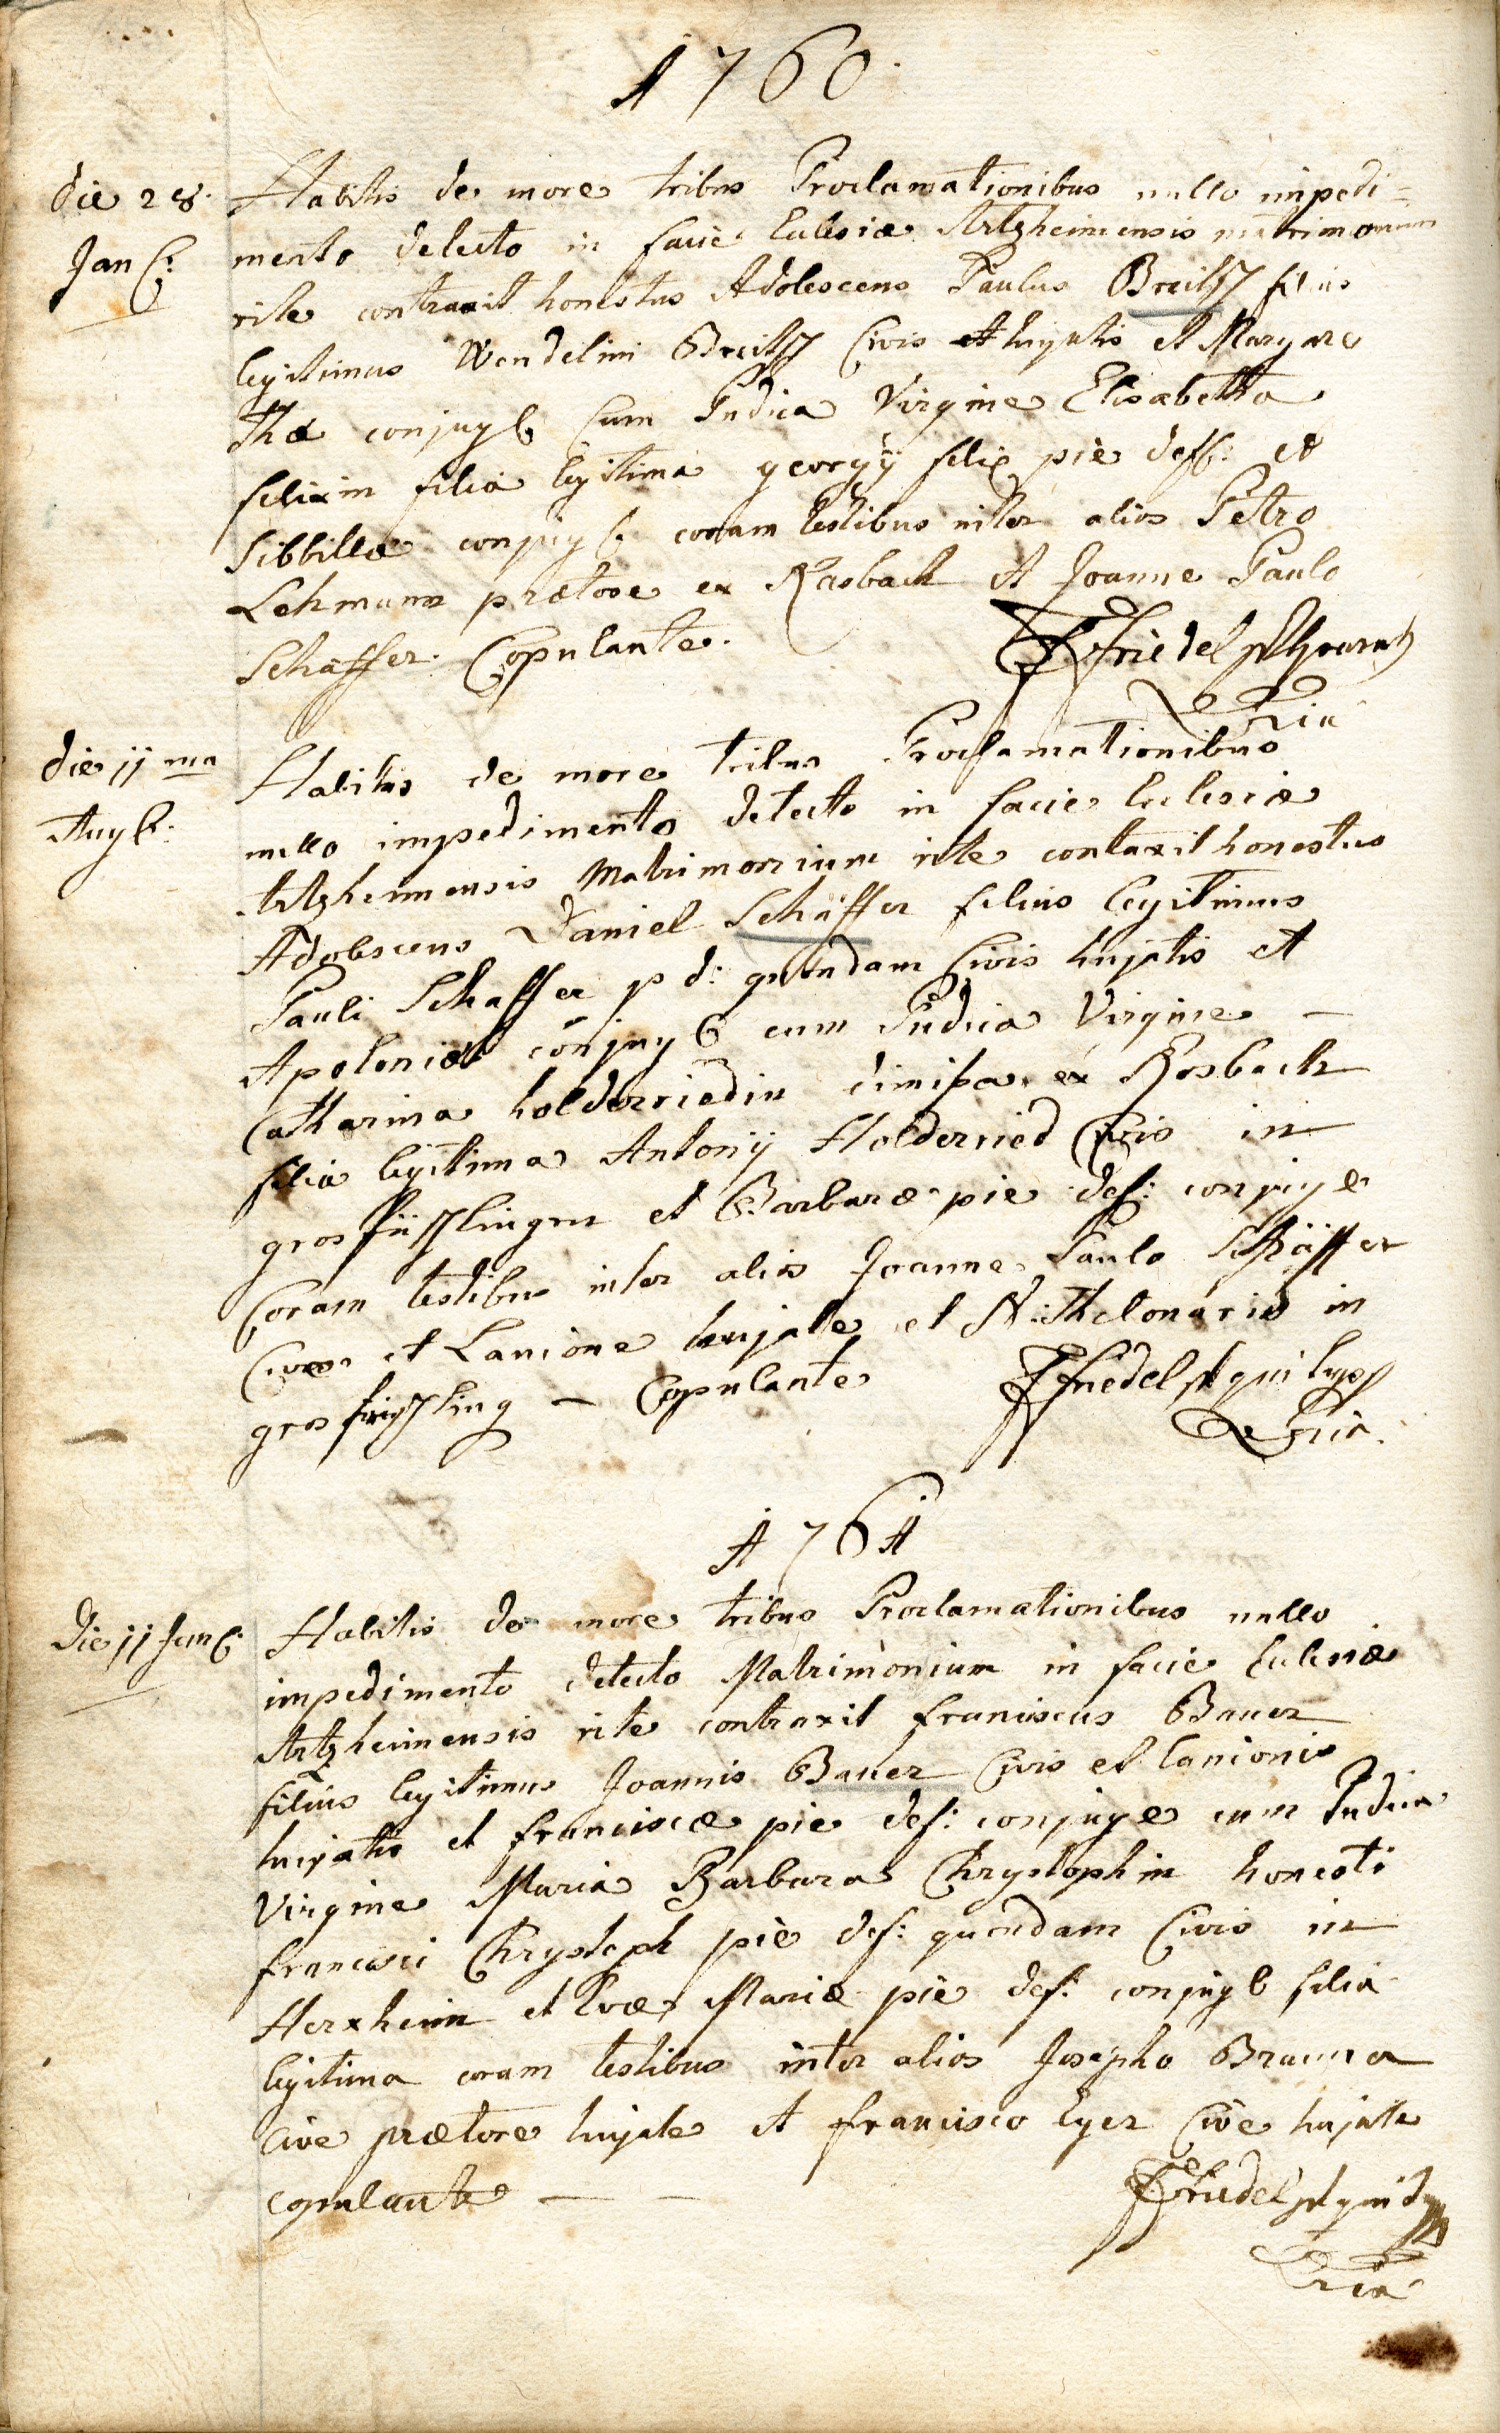 1760.
die 28.
Jan
Habitis de more tribus Proclamationibus nullo impedi=
mento detecto in facie Eclesiæ Artzheimensis matrimonium
rite contraxit honestus Adolescens Paulus filius
legitimus Wendelini Civis et hujatis et Marga
thæ conjug Cum Pudica Virgine Elisabetha
felixin filia legitima georgÿ felix pie deff: et
Sibbillæ conjug coram testibus inter alios Petro
Lehmann prætore ex Rasbach et Joanne Paulo
Schäffer. Copulante. Friedel
die 11 ma
Aug
Habitis de more tribus Proclamationibus
nullo impedimento detecto in facie Eclesiæ
Artzheimensis Matrimonium rite contraxit honestus
Adolescens Daniel Schäffer filius legitimus
Pauli Schaffer p d: quondam Civis hujatis et
Apoloniæ conjug cum Pudica Virgine —
Catharina holderriedin dimissa ex Rosbach
filia legitima Antonÿ Holderried Civis in
gros et Barbaræ pie def: conjuge
Coram testibus inter alios Joanne Paulo Schäffer
Cive et Lanione hujate et N: Thelonario in
gros — Copulante Friedel
1761
die 11 Jan
Habitis de more tribus Proclamationibus nullo
impedimento detecto Matrimonium in facie Eclesiæ
Artzheimensis rite contraxit franciscus Bauer
filius legitimus Joannis Bauer Civis et lanionis
hujatis et franciscæ pie def: conjuge cum Pudica
Virgine Maria Barbara Chrystophin honesti
francisci Chrystoph pie def: quondam Civis in
Herxheim et Evæ Mariæ pie def: conjug filia
legitima coram testibus inter alios Josepho Braun
Cive prætore hujate et francisco Eyer Cive hujate
copulante — — Friedel